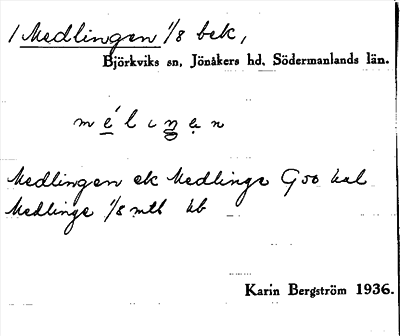 / Medlingen 1/8 bek,
Björkviks sn, Jönåkers hd, Södermanlands län.
mélıŋən
Medlingen ek Medlinge G 50 kal
Medlinge 1/8 mtl kb
Karin Bergström 1936.